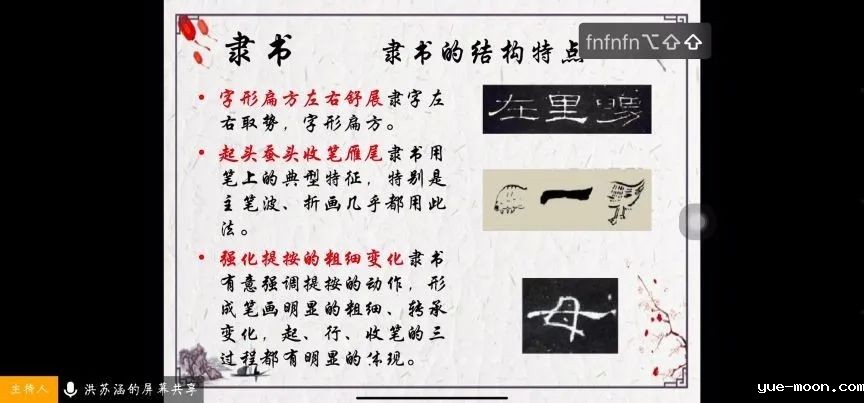 隶书
隶书的结构特点
fnfnfn⌥⇧⇧
• 字形扁方左右舒展隶字左
右取势，字形扁方。
• 起头蚕头收笔雁尾隶书用
笔上的典型特征，特别是
主笔波、折画几乎都用此
法。
• 强化提按的粗细变化隶书
有意强调提按的动作，形
成笔画明显的粗细、转承
变化，起、行、收笔的三
过程都有明显的体现。
在里
一
母
主持人 洪苏涵的屏幕共享
yue-moon.com